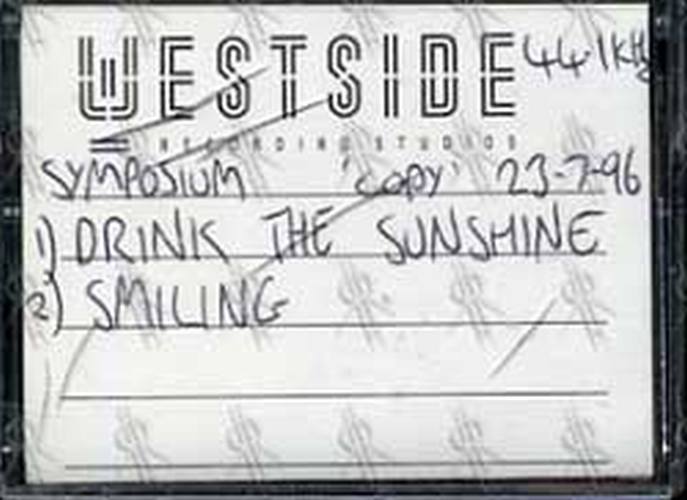 WESTSIDE 44.1kHz
RECORDING STUDIOS
SYMPOSIUM 'COPY' 23-7-96
1) DRINK THE SUNSHINE
2) SMILING